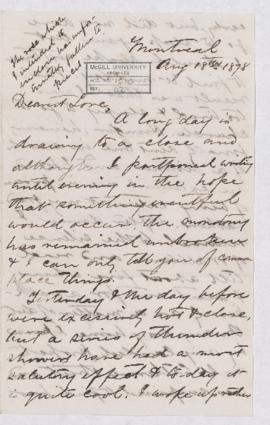 The rose which
I intended to
enclose has unfor-
tunately fallen to
pieces
Montreal
Aug 18th 1878
McGILL UNIVERSITY
ARCHIVES
ACC. NO.
REF.
Dearest Love,
A long day is
drawing to a close and
although I postponed writing
until evening in the hope
that something eventful
would occur the monotony
has remained unbroken
& I can only tell you of common
place things.
Yesterday & the day before
were excessively hot & close,
but a series of thunder
showers have had a most
salutary effect & today it
is quite cool. I woke up rather